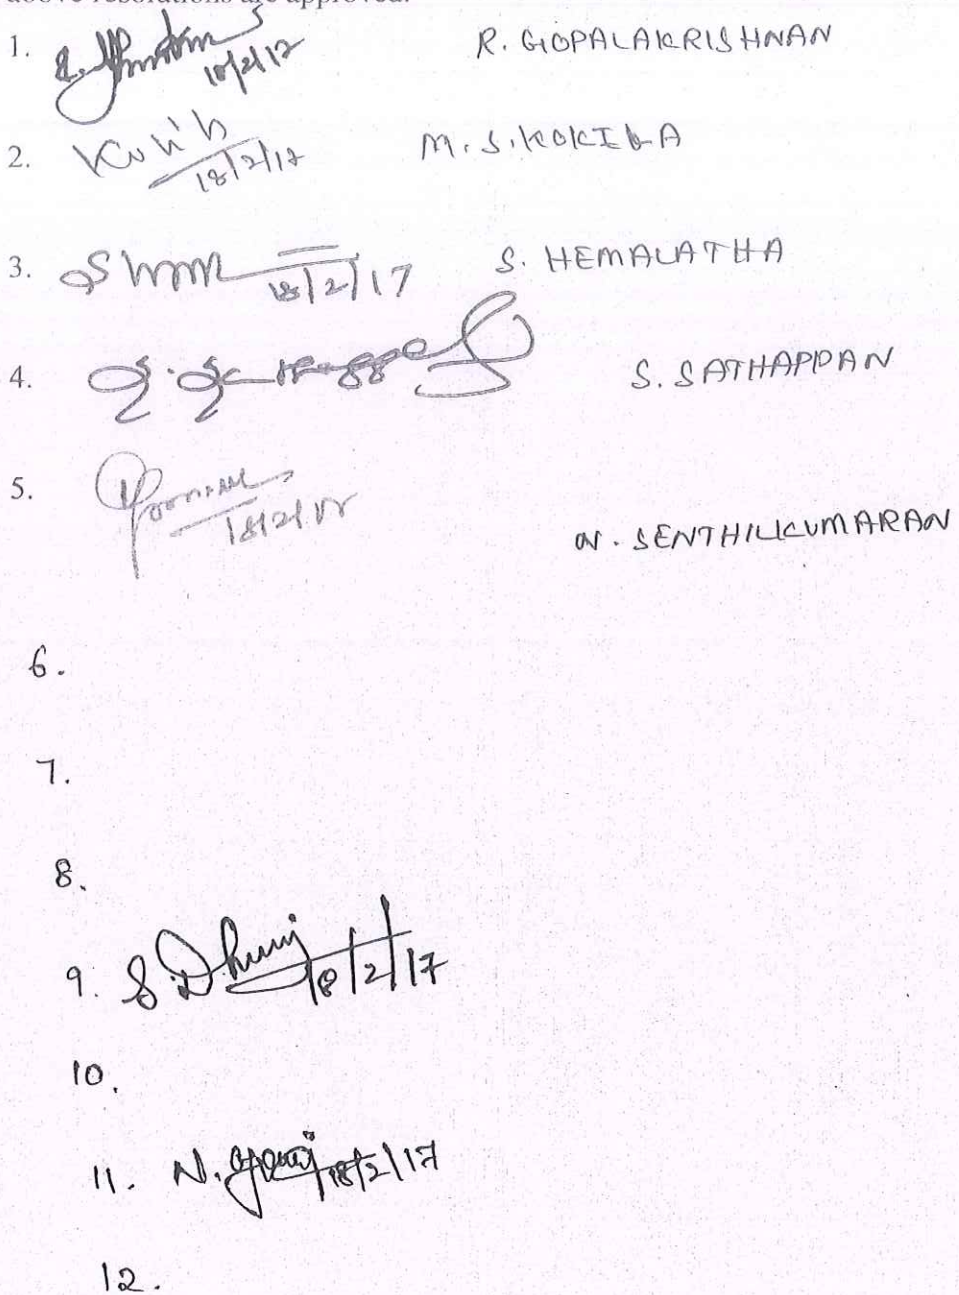 above resolutions are approved.
1. 18/2/17 R. GOPALAKRISHNAN
2. 18/2/17 M. S. KOKILA
3. 18/2/17 S. HEMALATHA
4. S. SATHAPPAN
5. 18/2/17 N. SENTHILKUMARAN
6.
7.
8.
9. 18/2/17
10.
11. N. 18/2/17
12.